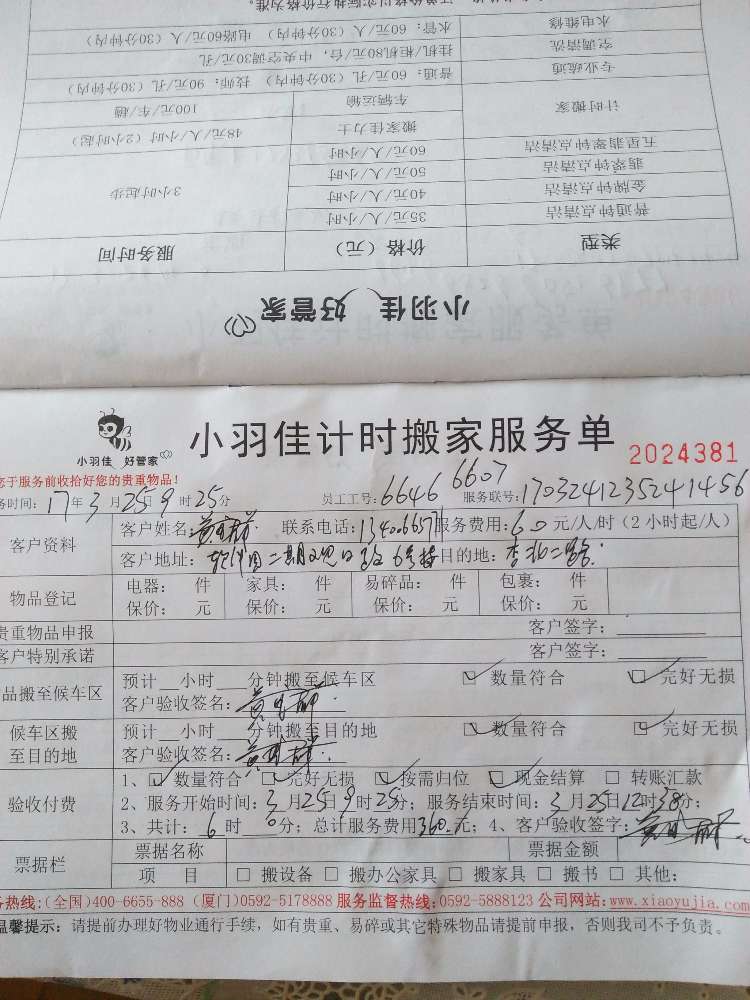 小羽佳 好管家
类型 价格（元） 服务时间
普通钟点清洁 35元/人/小时 3小时起步
金牌钟点清洁 40元/人/小时
翡翠钟点清洁 50元/人/小时
五星翡翠钟点清洁 60元/人/小时
计时搬家 搬家佳力士 48元/人/小时（2小时起）
车辆运输 100元/车/趟
专业疏通 普通：60元/孔（30分钟内） 技师：90元/孔（30分钟内）
空调清洗 挂机/柜机80元/台，中央空调30元/孔
水电维修 水管：60元/人（30分钟内） 电路60元/人（30分钟内）
小羽佳 好管家
小羽佳计时搬家服务单
2024381
您于服务前收拾好您的贵重物品！
务时间：17年3月25日9时25分 员工工号：6646 6607 服务联号：1703241235241456
客户资料 客户姓名： 联系电话： 服务费用：60元/人/时（2小时起/人）
客户地址： 目的地：
物品登记 电器： 件 家具： 件 易碎品： 件 包裹： 件
保价： 元 保价： 元 保价： 元 保价： 元
贵重物品申报 客户签字：
客户特别承诺 客户签字：
品搬至候车区 预计 小时 分钟搬至候车区 数量符合 完好无损
客户验收签名：
候车区搬至目的地 预计 小时 分钟搬至目的地 数量符合 完好无损
客户验收签名：
验收付费 1、 数量符合 完好无损 按需归位 现金结算 转账汇款
2、服务开始时间：3月25日9时25分；服务结束时间：3月25日12时38分；
3、共计：6时0分；总计服务费用360元；4、客户验收签字：
票据栏 票据名称 票据金额
项 目 搬设备 搬办公家具 搬家具 搬书 其他：
务热线：(全国)400-6655-888 (厦门)0592-5178888 服务监督热线：0592-5888123 公司网站：www.xiaoyujia.com
温馨提示：请提前办理好物业通行手续，如有贵重、易碎或其它特殊物品请提前申报，否则我司不予负责。